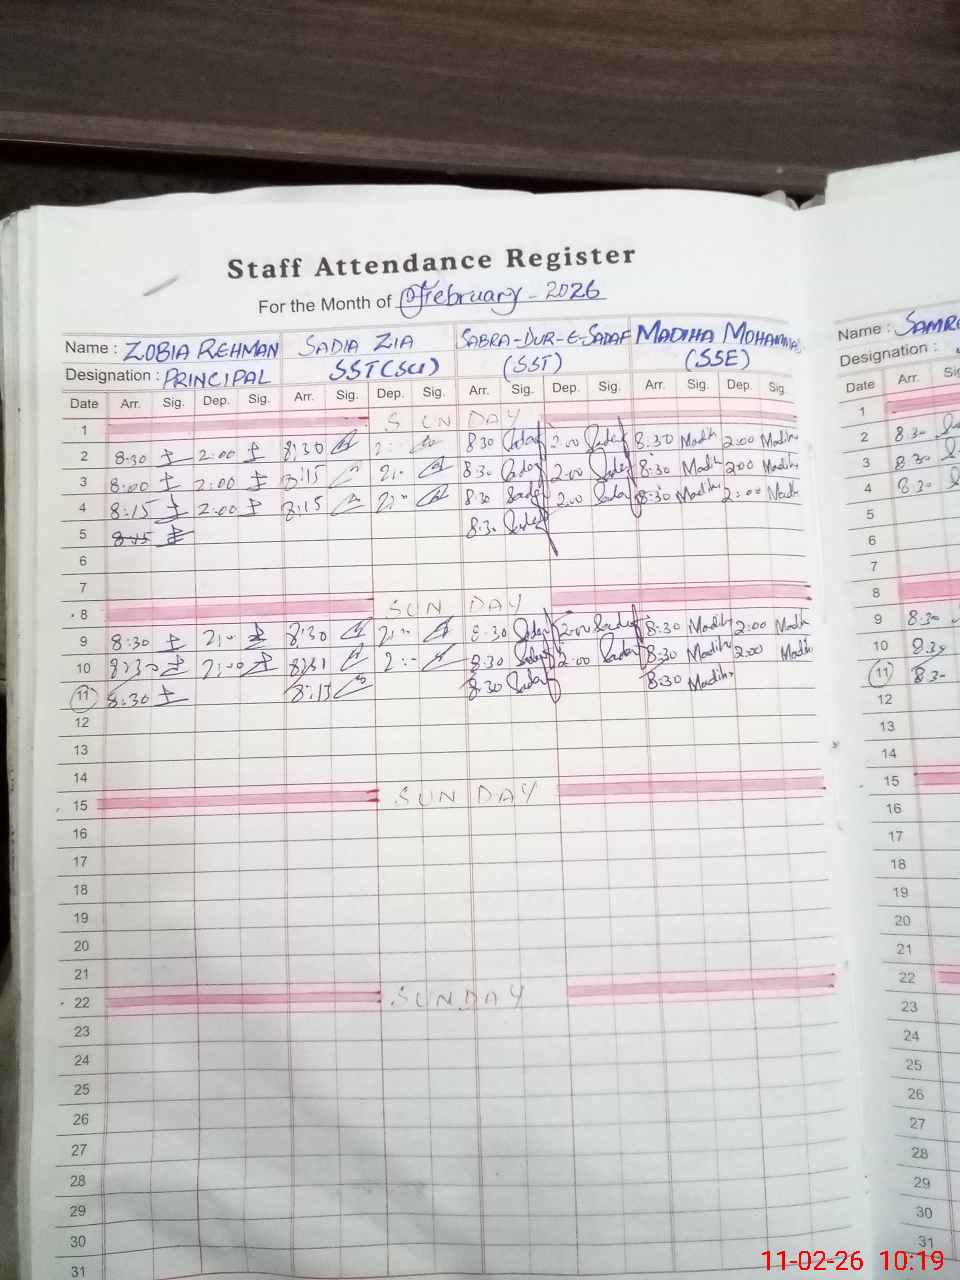 Staff Attendance Register
For the Month of February - 2026
Name : ZOBIA REHMAN SADIA ZIA SABRA-DUR-E-SADAF MADIHA MOHAMMAD Name : SAMRE
Designation : PRINCIPAL SST(SCI) (SST) (SSE) Designation :
Date Arr. Sig. Dep. Sig. Arr. Sig. Dep. Sig. Arr. Sig. Dep. Sig. Arr. Sig. Dep. Sig. Date Arr. Sig
1 SUNDAY 1
2 8:30 2:00 8:30 2: 8:30 Sadaf 2:00 Sadaf 8:30 Madiha 2:00 Madiha 2 8:30
3 8:00 2:00 8:15 2: 8:30 Sadaf 2:00 Sadaf 8:30 Madiha 2:00 Madiha 3 8:30
4 8:15 2:00 8:15 2: 8:30 Sadaf 2:00 Sadaf 8:30 Madiha 2:00 Madiha 4 8:30
5 8:15 8:30 Sadaf 5
6 6
7 7
8 SUNDAY 8
9 8:30 2: 8:30 2: 8:30 Sadaf 2:00 Sadaf 8:30 Madiha 2:00 Madiha 9 8:30
10 8:30 2:00 2: 8:30 Sadaf 2:00 Sadaf 8:30 Madiha 2:00 Madiha 10 8:30
11 8:30 8:15 8:30 Sadaf 8:30 Madiha 11 8:30
12 12
13 13
14 14
15 SUNDAY 15
16 16
17 17
18 18
19 19
20 20
21 21
22 SUNDAY 22
23 23
24 24
25 25
26 26
27 27
28 28
29 29
30 30
31 31
11-02-26 10:19